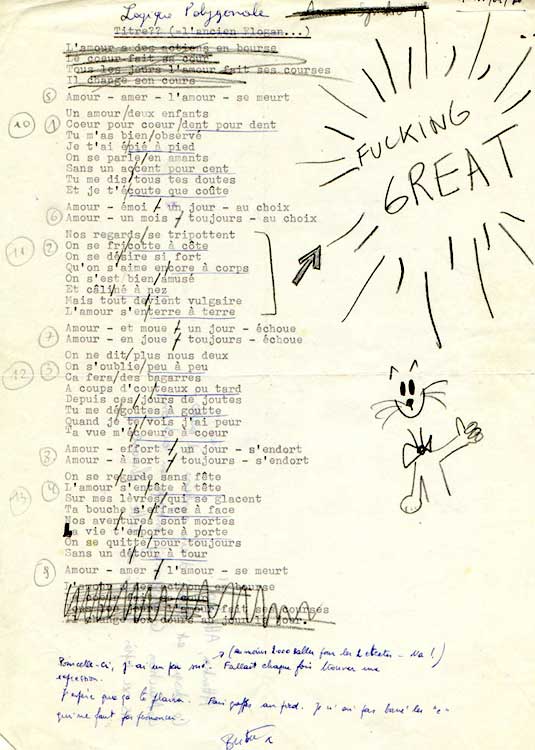 Logique Polygonale
Titre?? (=l'ancien Slogan...)
L'amour a des actions en bourse
Le coeur fait sa cour
Tous les jours l'amour fait ses courses
Il change son cours
5 Amour - amer - l'amour - se meurt
10 1 Un amour/deux enfants
Coeur pour coeur/dent pour dent
Tu m'as bien/observé
Je t'ai épié à pied
On se parle/en amants
Sans un accent pour cent
Tu me dis/tous tes doutes
Et je t'écoute que coûte
Amour - émoi - un jour - au choix
6 Amour - un mois - toujours - au choix
Nos regards/se tripottent
11 2 On se fricotte à côte
On se désire si fort
Qu'on s'aime encore à corps
On s'est bien/amusé
Et câliné à nez
Mais tout devient vulgaire
L'amour s'enterre à terre
Amour - et moue - un jour - échoue
7 Amour - en joue - toujours - échoue
On ne dit/plus nous deux
12 3 On s'oublie/peu à peu
Ca fera/des bagarres
A coups d'couteaux ou tard
Depuis ces/jours de joutes
Tu me dégoûtes à goutte
Quand je te/vois j'ai peur
Ta vue m'écoeure à coeur
8 Amour - effort - un jour - s'endort
Amour - à mort - toujours - s'endort
On se regarde sans fête
13 4 L'amour s'entête à tête
Sur mes lèvres/qui se glacent
Ta bouche s'efface à face
Nos aventures sont mortes
La vie t'emporte à porte
On se quitte/pour toujours
Sans un détour à tour
9 Amour - amer - l'amour - se meurt
L'amour a des actions en bourse
fait ses courses
Il change son cours au jour le jour.
FUCKING
GREAT
(au moins 2000 balles pour les
Pour celle-ci, j'ai un peu sué. Fallait chaque fois trouver une
expression.
J'espère que ça te plaira. Fais gaffe au pied. Je n'ai pas barré les "e"
qu'il ne faut pas prononcer.